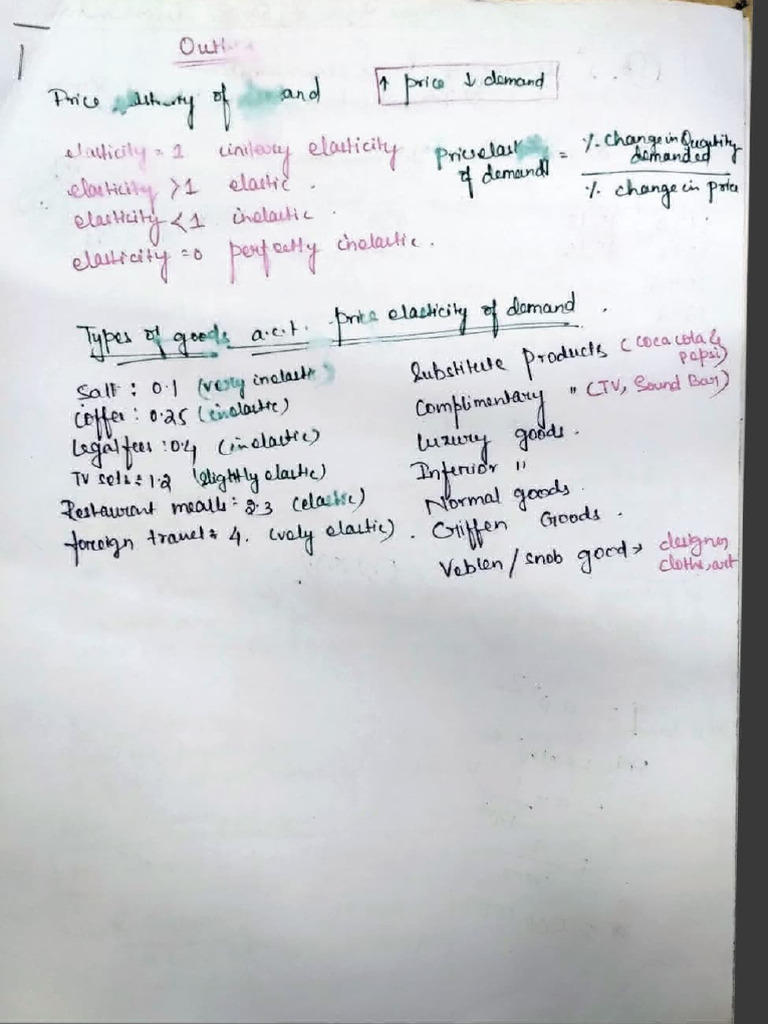 Outli
Price of and
↑ price ↓ demand
elasticity = 1 unitary elasticity
elasticity > 1 elastic.
elasticity < 1 inelastic.
elasticity = 0 perfectly inelastic.
Price elast of demand = % change in Quantity demanded
% change in price
Types of goods a.c.t. price elasticity of demand.
Salt : 0.1 (very inelastic)
Coffee : 0.25 (inelastic)
Legal fees : 0.4 (inelastic)
TV sets : 1.2 (slightly elastic)
Restaurant mealls : 2.3 (elastic)
foreign travel : 4. (very elastic).
Substitute products (coca cola & pepsi)
Complimentary " (TV, Sound Bar)
Luxury goods.
Inferior "
Normal goods.
Giffen Goods.
Veblen / snob good → designer
clothes, art